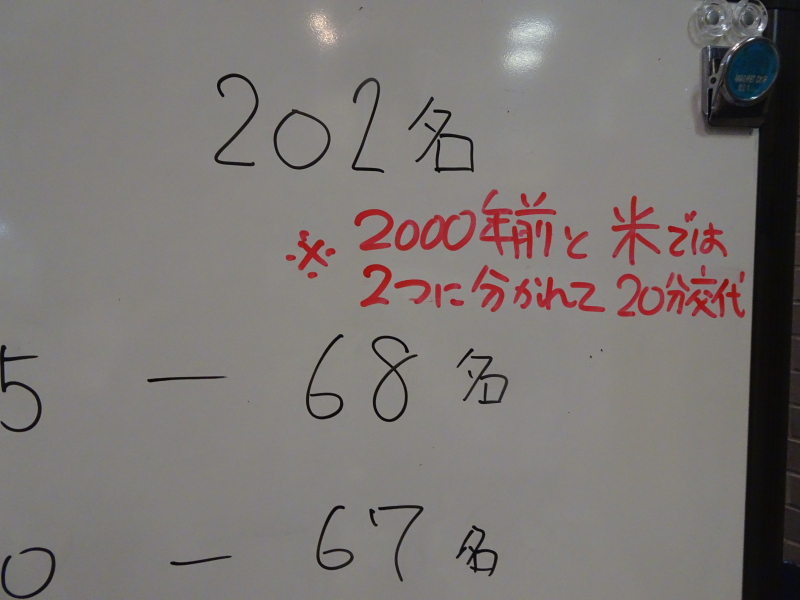 202名
※ 2000年前と米では
2つに分かれて 20分交代
5 — 68名
0 — 67名